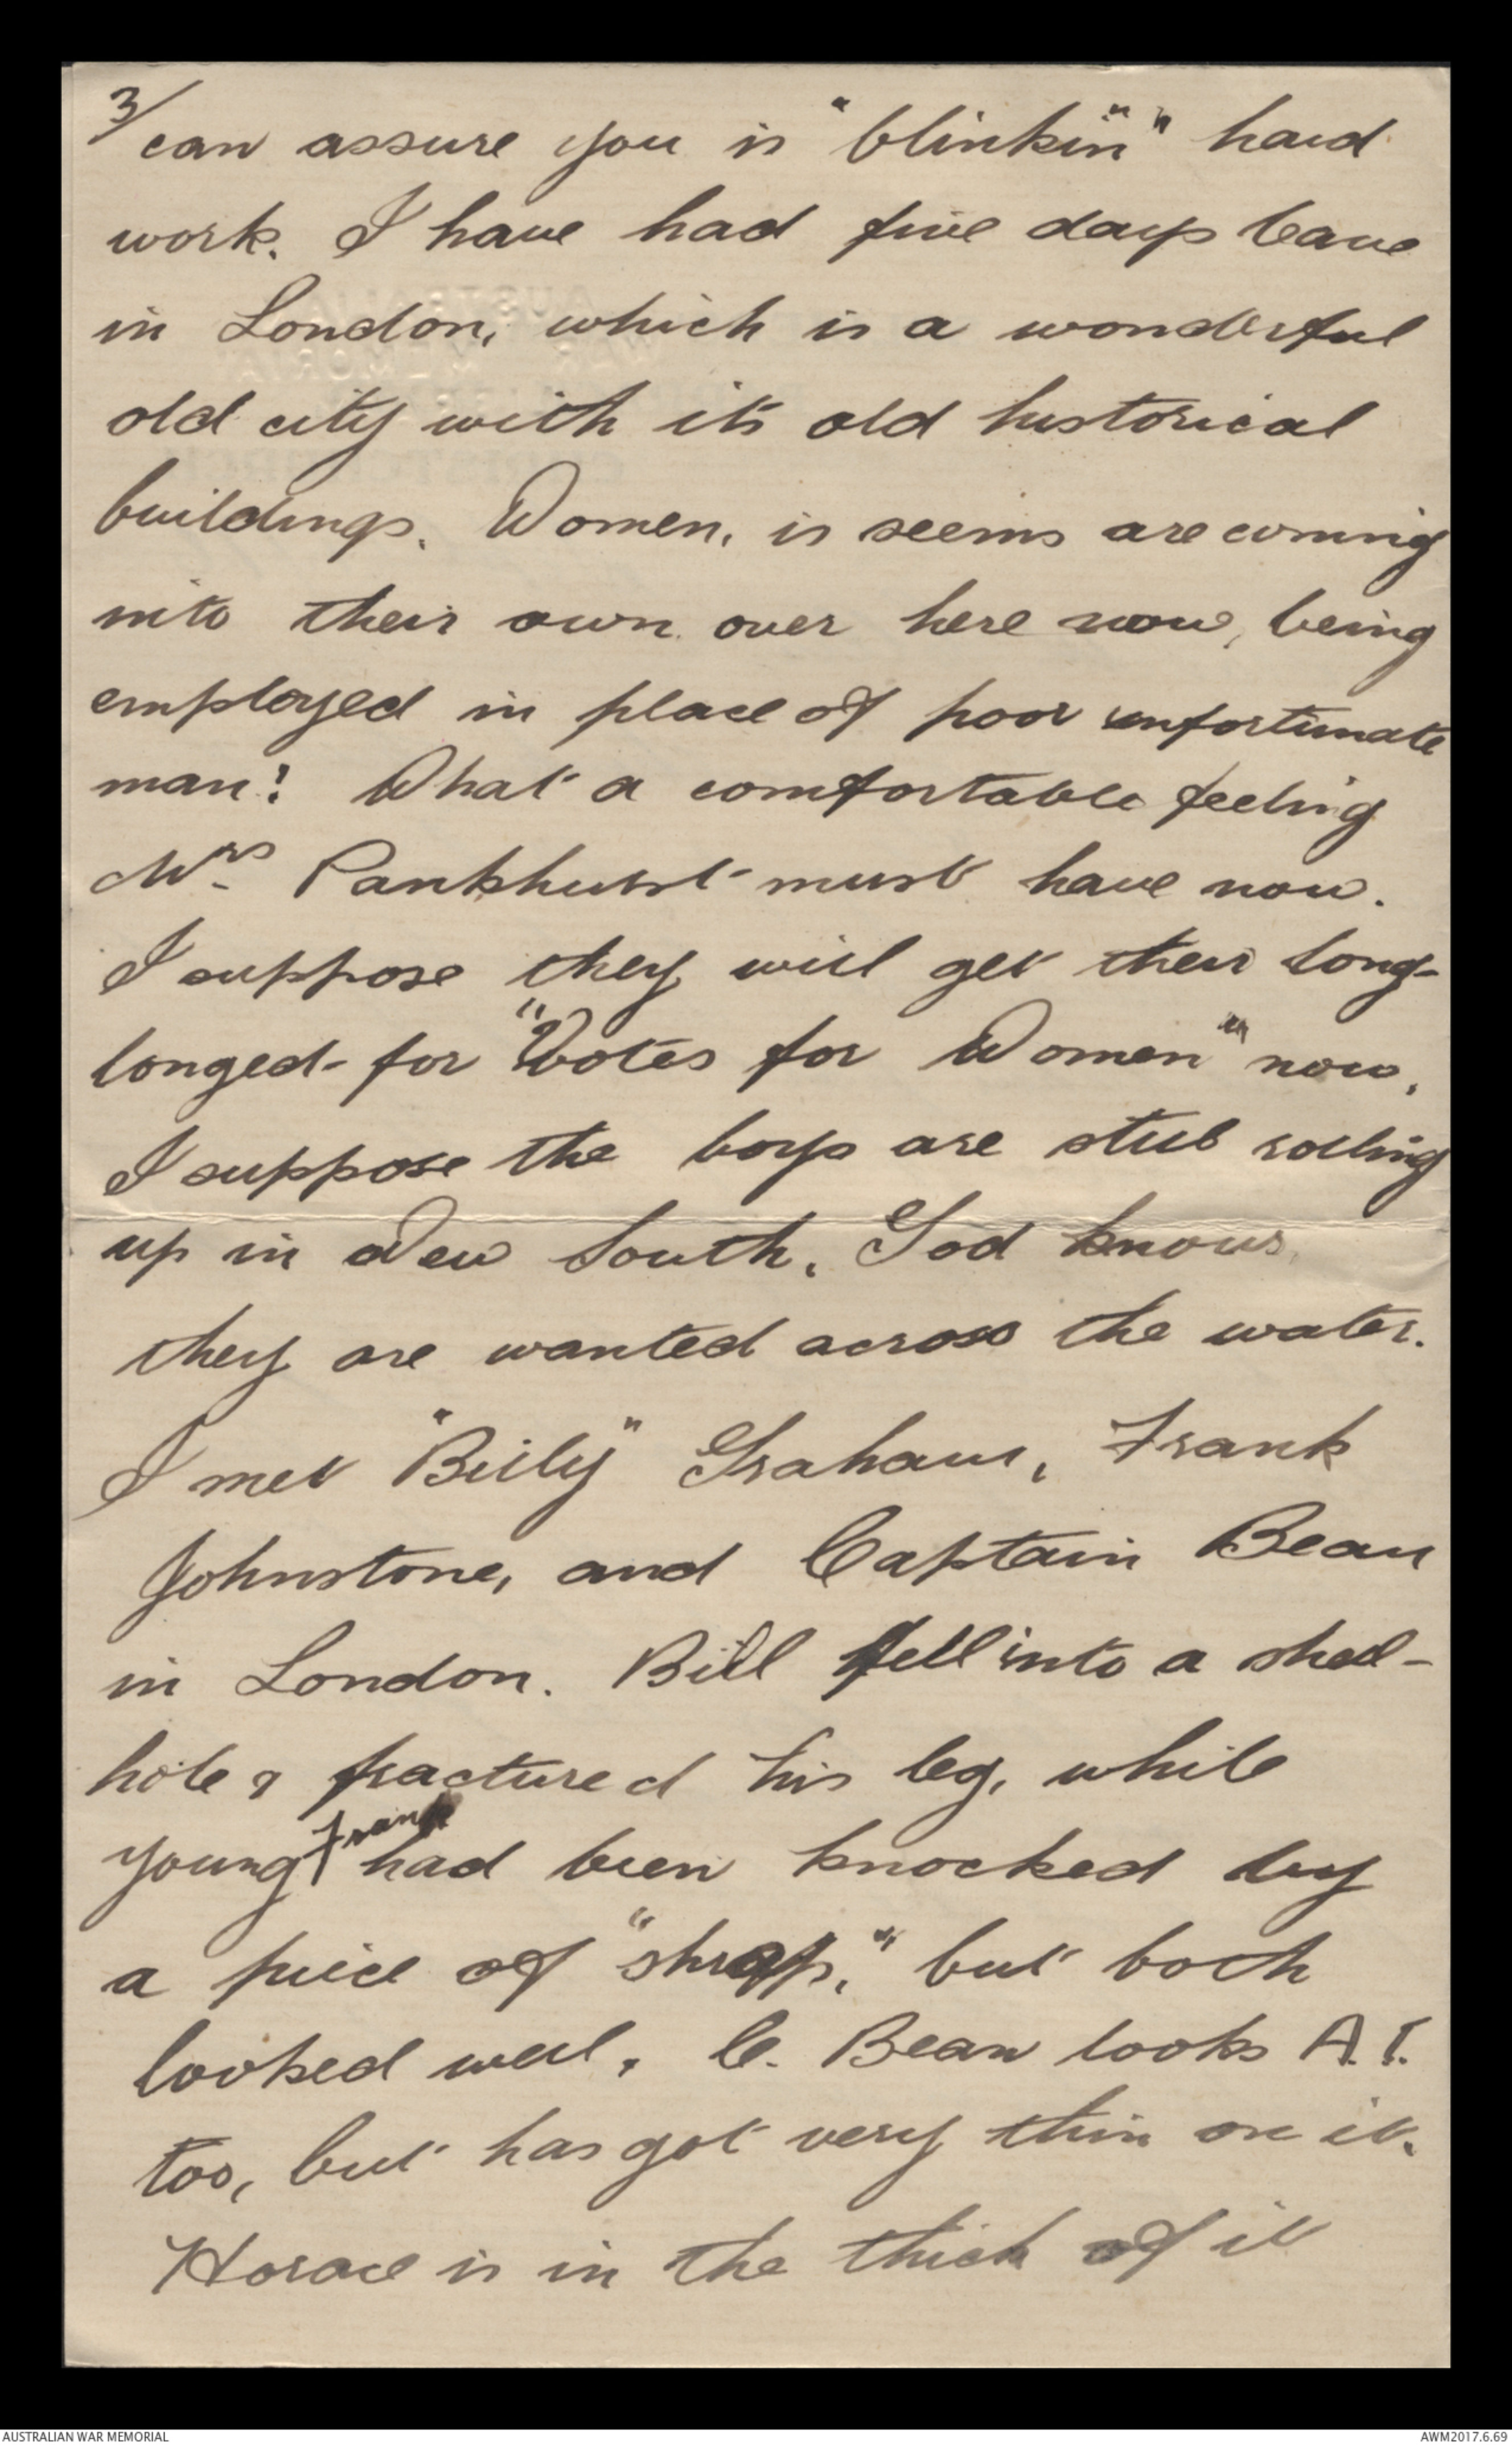 3/
can assure you is "blinkin'" hard
work. I have had five days leave
in London, which is a wonderful
old city with it's old historical
buildings. Women, is seems are coming
into their own over here now, being
employed in place of poor unfortunate
man! What a comfortable feeling
Mrs Pankhurst must have now.
I suppose they will get their long-
longed-for "Votes for Women" now.
I suppose the boys are still rolling
up in New South. God knows
they are wanted across the water.
I met "Billy" Graham, Frank
Johnstone, and Captain Bean
in London. Bill fell into a shell-
hole & fractured his leg, while
young Frank had been knocked by
a piece of "shrap," but both
looked well. C. Bean looks A.1.
too, but has got very thin on it.
Horace is in the thick of it
AUSTRALIAN WAR MEMORIAL
AWM2017.6.69